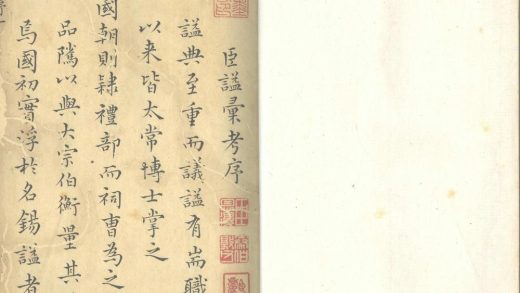 臣謚彙考序
謚典至重而議謚有耑職
以来皆太常博士掌之
國朝則隸禮部而祠曹為之
品隲以與大宗伯衡量其
焉國初實浮於名錫謚者